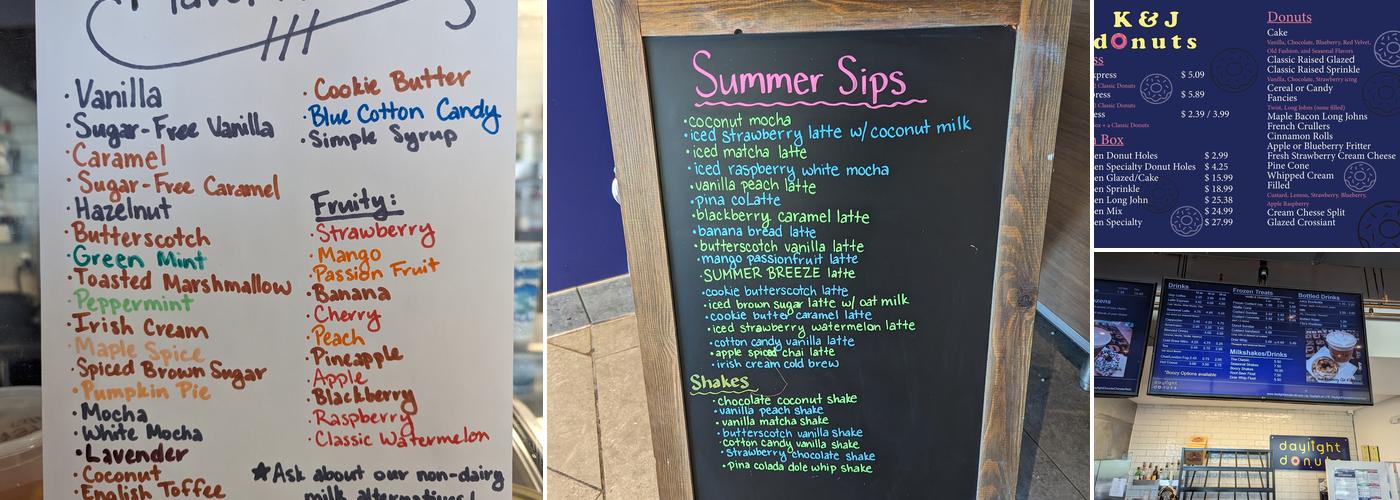 · Vanilla
· Sugar-Free Vanilla
· Caramel
· Sugar-Free Caramel
· Hazelnut
· Butterscotch
· Green Mint
· Toasted Marshmallow
· Peppermint
· Irish Cream
· Maple Spice
· Spiced Brown Sugar
· Pumpkin Pie
· Mocha
· White Mocha
· Lavender
· Coconut
· English Toffee
· Cookie Butter
· Blue Cotton Candy
· Simple Syrup
Fruity:
· Strawberry
· Mango
· Passion Fruit
· Banana
· Cherry
· Peach
· Pineapple
· Apple
· Blackberry
· Raspberry
· Classic Watermelon
★Ask about our non-dairy
milk alternatives!
Summer Sips
· coconut mocha
· iced strawberry latte w/ coconut milk
· iced matcha latte
· iced raspberry white mocha
· vanilla peach latte
· pina coLatte
· blackberry caramel latte
· banana bread latte
· butterscotch vanilla latte
· mango passionfruit latte
· SUMMER BREEZE latte
· cookie butterscotch latte
· iced brown sugar latte w/ oat milk
· cookie butter caramel latte
· iced strawberry watermelon latte
· cotton candy vanilla latte
· apple spiced chai latte
· irish cream cold brew
Shakes
· chocolate coconut shake
· vanilla peach shake
· vanilla matcha shake
· butterscotch vanilla shake
· cotton candy vanilla shake
· strawberry chocolate shake
· pina colada dole whip shake
K & J
donuts
xpress $ 5.09
d Classic Donuts
press $ 5.89
d Classic Donuts
$ 2.39 / 3.99
box + a Classic Donuts
n Box
en Donut Holes $ 2.99
en Specialty Donut Holes $ 4.25
en Glazed/Cake $ 15.99
en Sprinkle $ 18.99
en Long John $ 25.38
en Mix $ 24.99
en Specialty $ 27.99
Donuts
Cake
Vanilla, Chocolate, Blueberry, Red Velvet,
Old Fashion, and Seasonal Flavors
Classic Raised Glazed
Classic Raised Sprinkle
Vanilla, Chocolate, Strawberry icing
Cereal or Candy
Fancies
Twist, Long Johns (none filled)
Maple Bacon Long Johns
French Crullers
Cinnamon Rolls
Apple or Blueberry Fritter
Fresh Strawberry Cream Cheese
Pine Cone
Whipped Cream
Filled
Custard, Lemon, Strawberry, Blueberry,
Apple Raspberry
Cream Chesse Split
Glazed Crossiant
Drinks
Frozen Treats
Bottled Drinks
Milkshakes/Drinks
The Classic
Seasonal Shakes
Boozy Shakes
Root Beer Float
Dole Whip Float
*Boozy Options available
daylight
donuts
daylight
donuts